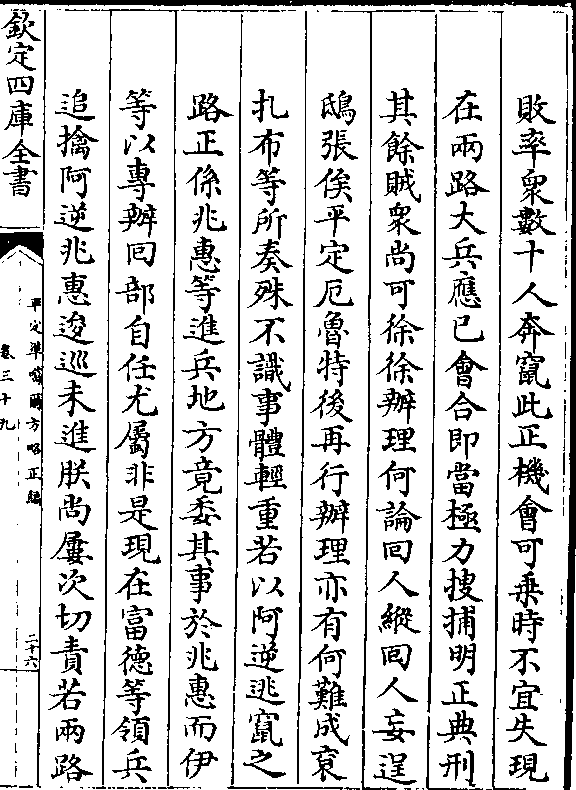 敗率衆數十人奔竄此正機會可乗時不宜失現
在兩路大兵應已會合即當極力搜捕明正典刑
其餘賊衆尚可徐徐辦理何論回人縱回人妄逞
鴟張俟平定厄魯特後再行辦理亦有何難成衮
扎布等所奏殊不識事體輕重若以阿逆逃竄之
路正係兆惠等進兵地方竟委其事於兆惠而伊
等以專辦回部自任尤屬非是現在富德等領兵
追擒阿逆兆惠逡巡未進朕尚屢次切責若兩路
欽定四庫全書
平定準噶爾方略正編
卷三十九
二十六